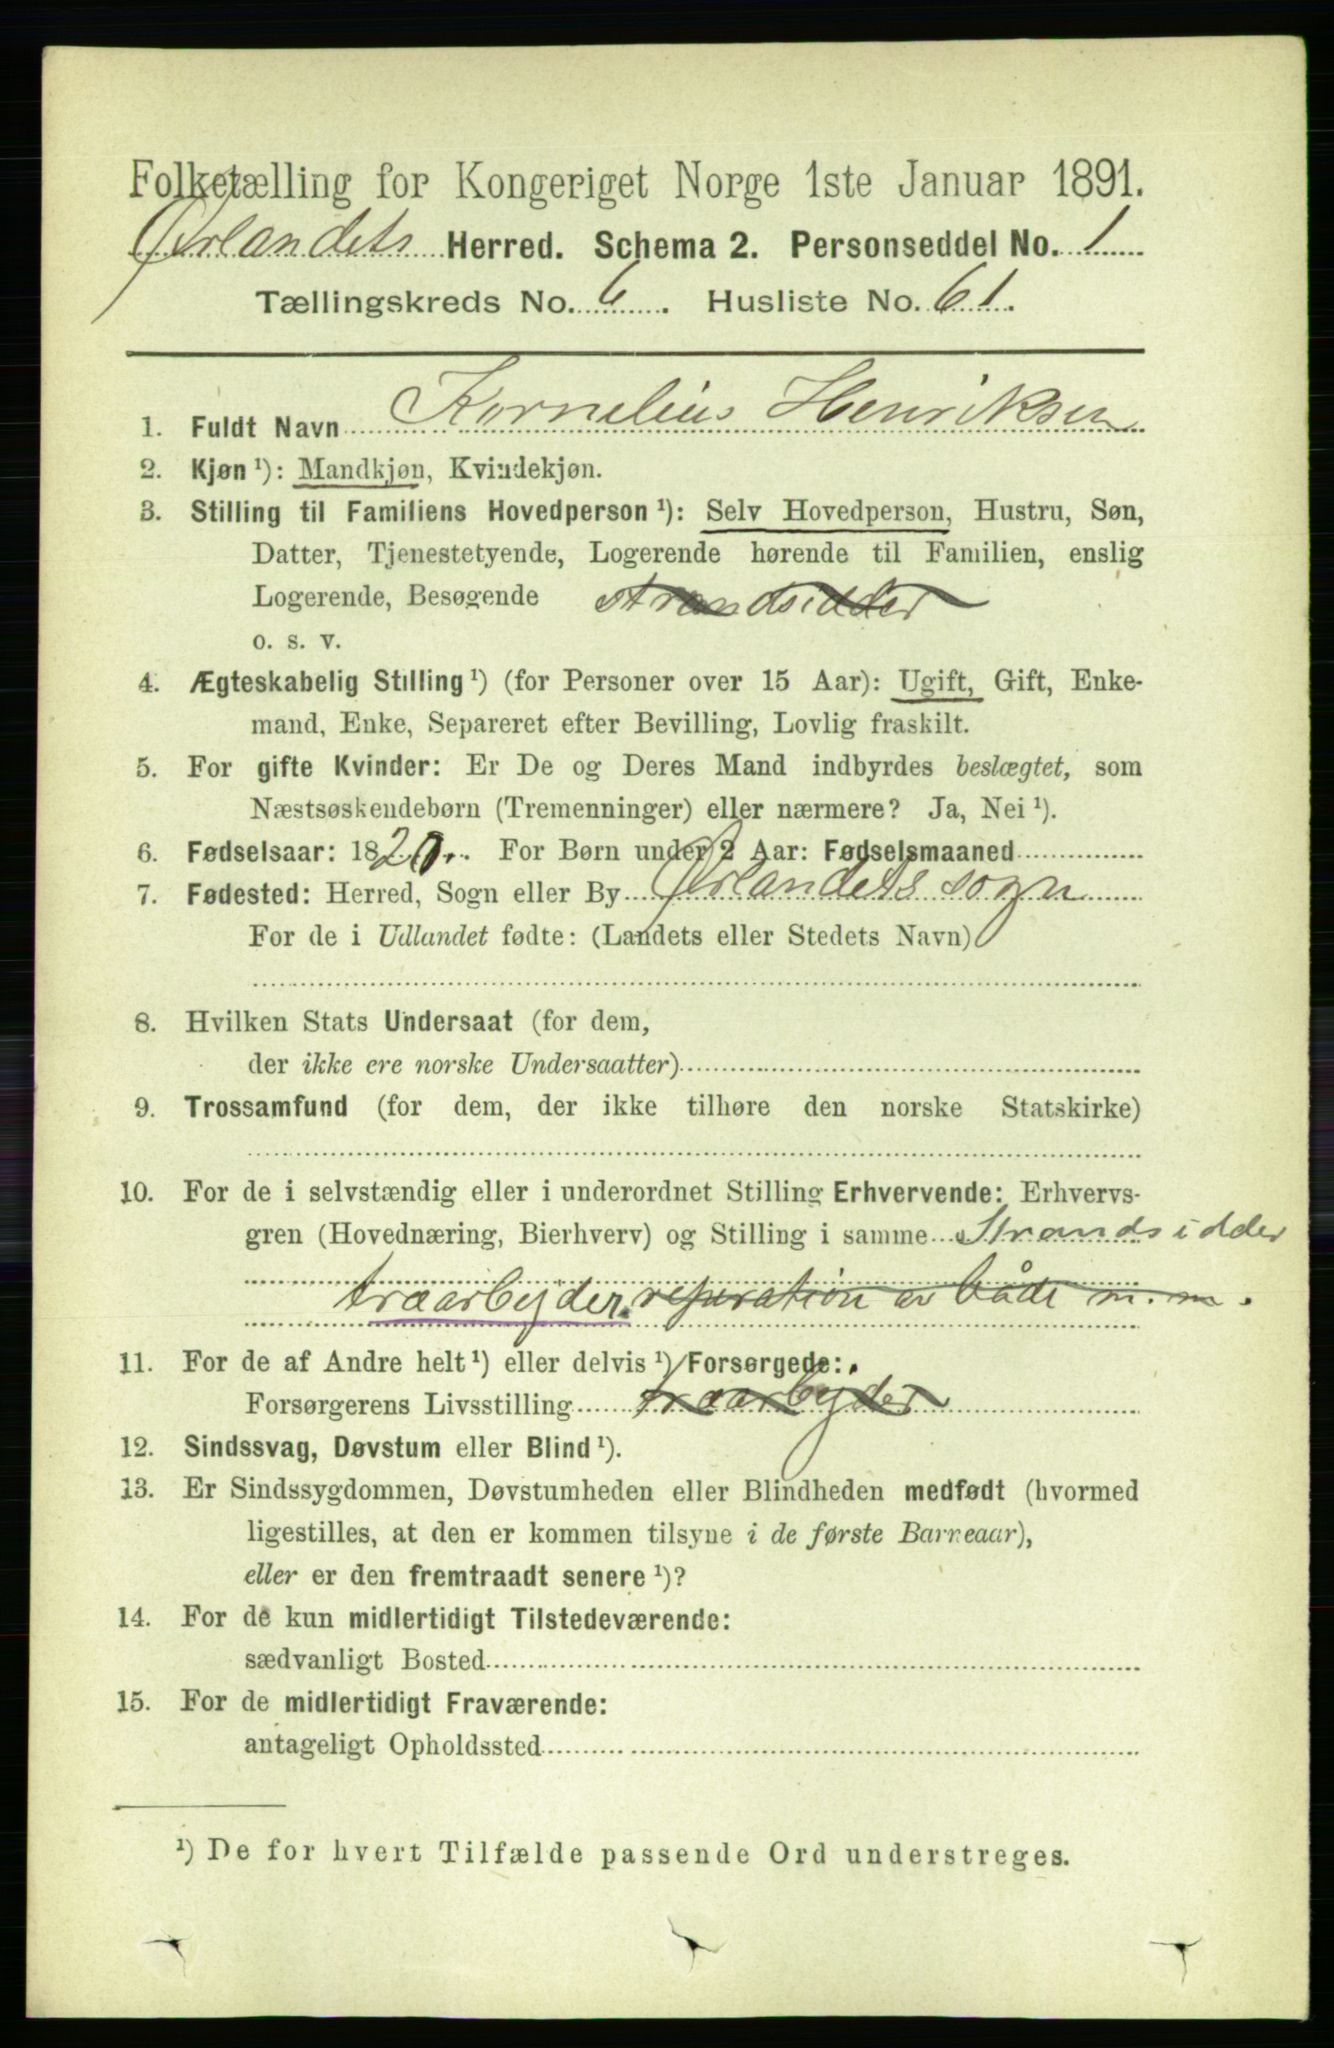 Folketælling for Kongeriget Norge 1ste Januar 1891.
Ørlandets Herred. Schema 2. Personseddel No. 1
Tællingskreds No. 6. Husliste No. 61.
1. Fuldt Navn Kornelius Henriksen
2. Kjøn ¹): Mandkjøn, Kvindekjøn.
3. Stilling til Familiens Hovedperson ¹): Selv Hovedperson, Hustru, Søn,
Datter, Tjenestetyende, Logerende hørende til Familien, enslig
Logerende, Besøgende strandsidder
o. s. v.
4. Ægteskabelig Stilling ¹) (for Personer over 15 Aar): Ugift, Gift, Enke-
mand, Enke, Separeret efter Bevilling, Lovlig fraskilt.
5. For gifte Kvinder: Er De og Deres Mand indbyrdes beslægtet, som
Næstsøskendebørn (Tremenninger) eller nærmere? Ja, Nei ¹).
6. Fødselsaar: 1820. For Børn under 2 Aar: Fødselsmaaned
7. Fødested: Herred, Sogn eller By Ørlandets sogn
For de i Udlandet fødte: (Landets eller Stedets Navn)
8. Hvilken Stats Undersaat (for dem,
der ikke ere norske Undersaatter)
9. Trossamfund (for dem, der ikke tilhøre den norske Statskirke)
10. For de i selvstændig eller i underordnet Stilling Erhvervende: Erhvervs-
gren (Hovednæring, Bierhverv) og Stilling i samme Strandsidder
træarbejder reparation av både m.m.
11. For de af Andre helt ¹) eller delvis ¹) Forsørgede:
Forsørgerens Livsstilling træarbyder
12. Sindssvag, Døvstum eller Blind ¹).
13. Er Sindssygdommen, Døvstumheden eller Blindheden medfødt (hvormed
ligestilles, at den er kommen tilsyne i de første Barneaar),
eller er den fremtraadt senere ¹)?
14. For de kun midlertidigt Tilstedeværende:
sædvanligt Bosted
15. For de midlertidigt Fraværende:
antageligt Opholdssted
¹) De for hvert Tilfælde passende Ord understreges.